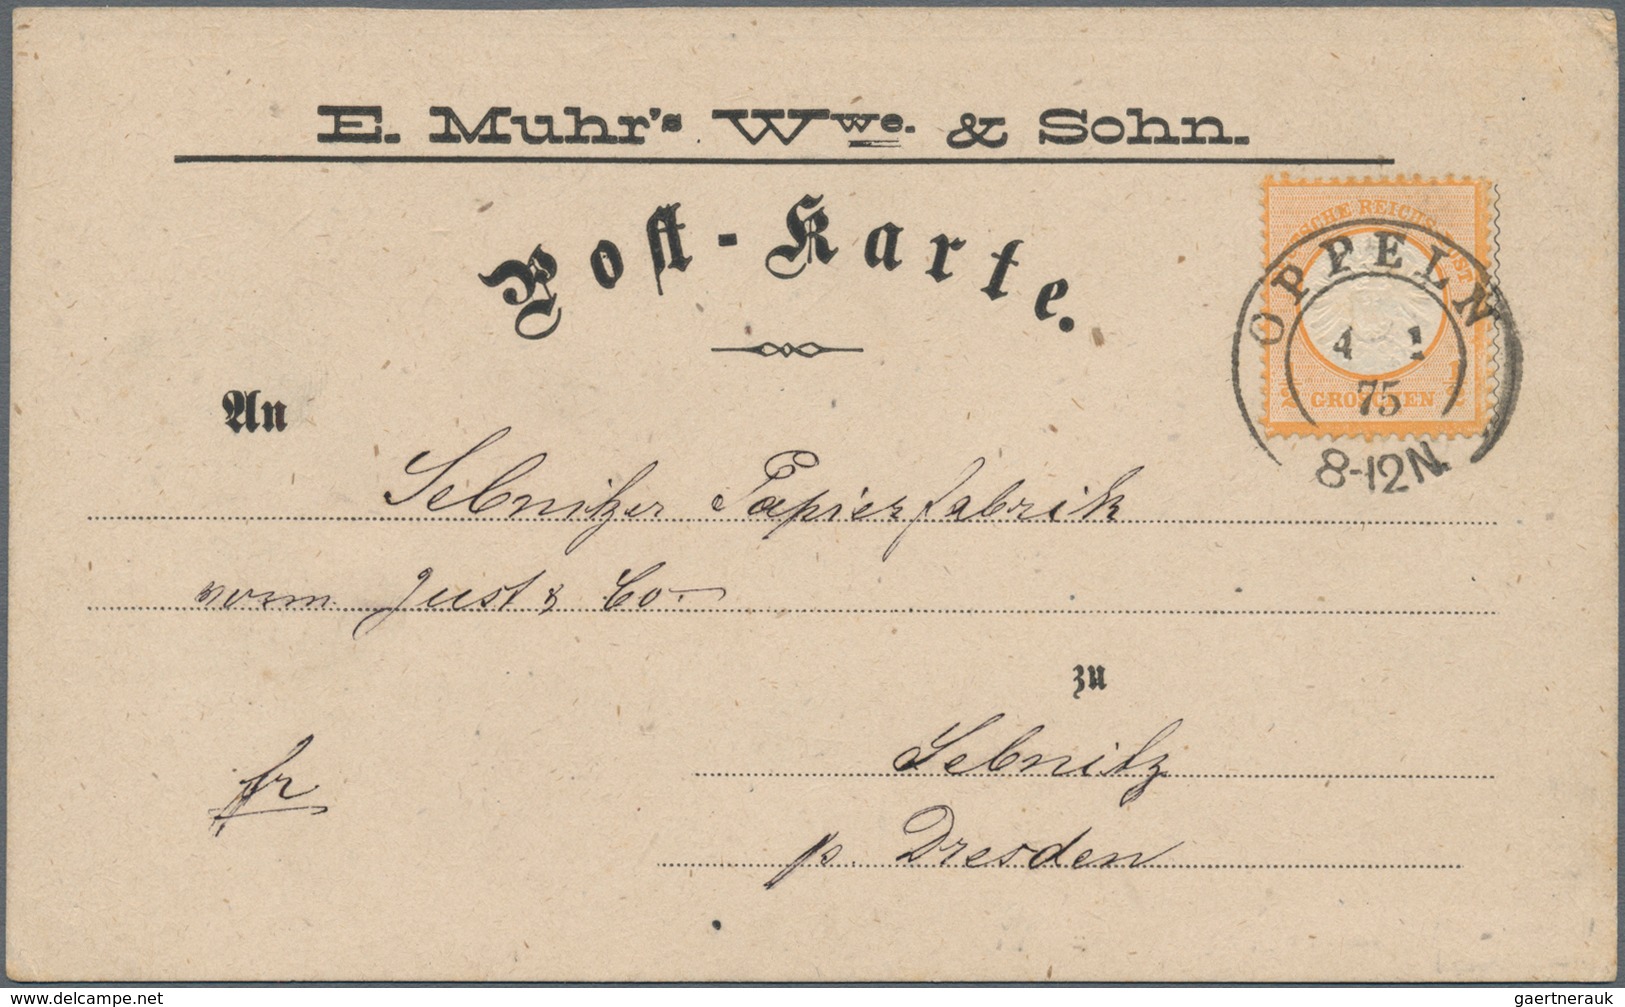 E. Muhr's Wwe. & Sohn.
Post-Karte.
DEUTSCHE REICHS-POST
OPPELN
4 1
75
8-12N.
1/2 GROSCHEN 1/2
An
Sebnitzer Papierfabrik
vorm Just & Co.
zu
Sebnitz
fr
p. Dresden
www.delcampe.net
gaertnerauk